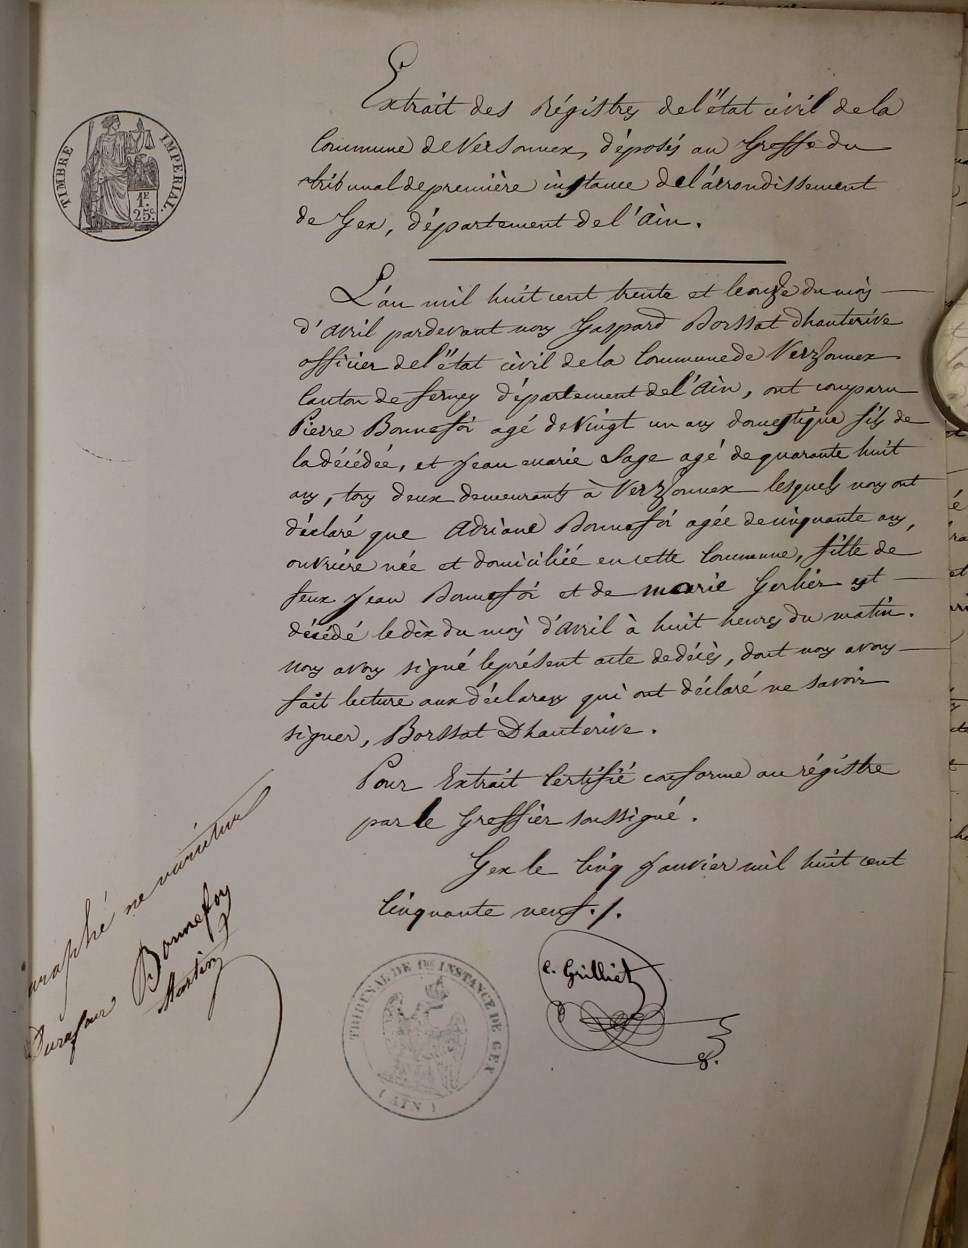 TIMBRE IMPERIAL.
1F.
25c
Extrait des Régistres de l'état civil de la
Commune de Versonnex, déposés au Greffe du
tribunal de première instance de l'arrondissement
de Gex, département de l'Ain.
L'an mil huit cent trente et le onze du mois
d'avril pardevant nous Gaspard Borssat Dhauterive
officier de l'état civil de la Commune de Verzonnex
Canton de ferney département de l'Ain, ont comparu
Pierre Bonnefoi agé de vingt un ans domestique fils de
la décédée, et Jean marie Sage agé de quarante huit
ans, tous deux demeurants à Verzonnex lesquels nous ont
déclaré que Adriane Bonnefoi agée de cinquante ans,
ouvrière née et domiciliée en cette Commune, fille de
feux Jean Bonnefoi et de marie Gerlier est
décédé le dix du mois d'avril à huit heures du matin.
nous avons signé le présent acte de décès, dont nous avons
fait lecture aux déclarans qui ont déclaré ne savoir
signer, Borssat Dhauterive.
Pour Extrait Certifié conforme au régistre
par le Greffier soussigné.
Gex le Cinq Janvier mil huit cent
Cinquante neuf./.
C. Grilliet
paraphé ne varietur
Durafour Bonnefoy
Martin
TRIBUNAL DE 1re INSTANCE DE GEX
(AIN)